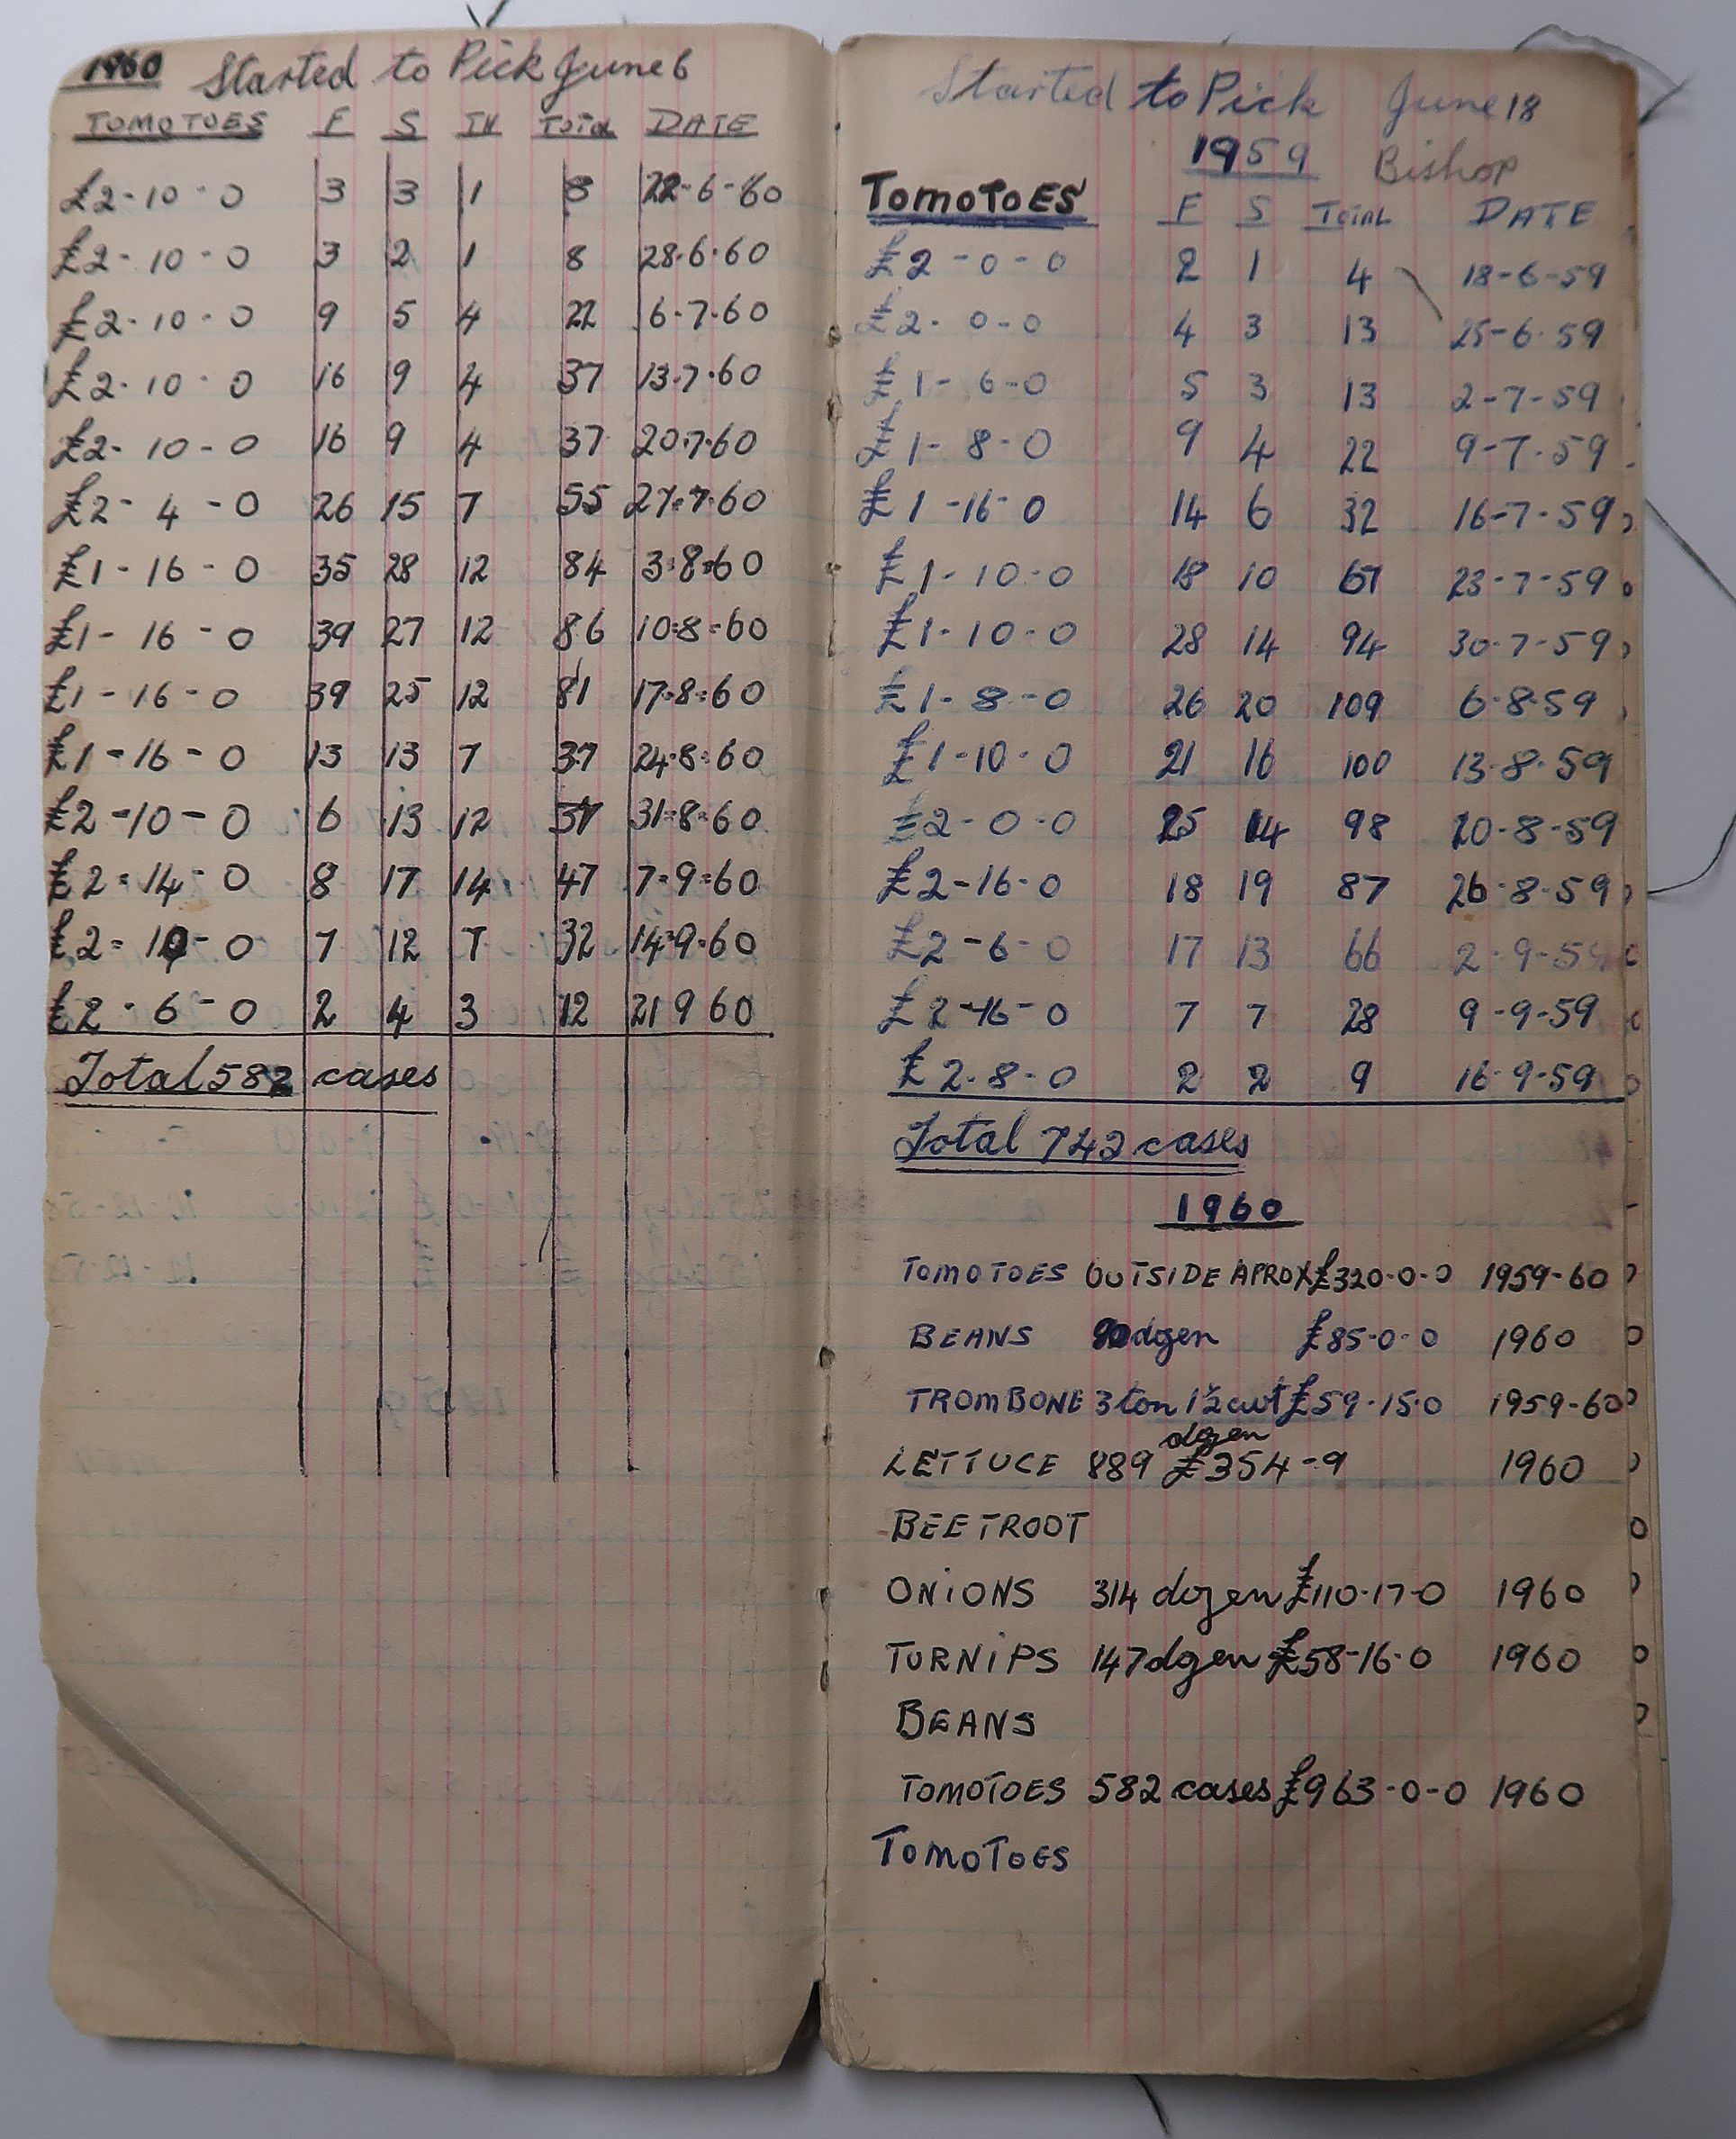 1960 Started to Pick June 6
TOMOTOES F S TH TOTAL DATE
£2-10-0 3 3 1 8 22-6-60
£2-10-0 3 2 1 8 28.6.60
£2-10-0 9 5 4 22 6.7.60
£2-10-0 16 9 4 37 13.7.60
£2-10-0 16 9 4 37 20.7.60
£2-4-0 26 15 7 55 27.7.60
£1-16-0 35 28 12 84 3.8.60
£1-16-0 39 27 12 86 10.8.60
£1-16-0 39 25 12 81 17.8.60
£1-16-0 13 13 7 37 24.8.60
£2-10-0 6 13 12 31.8.60
£2-14-0 8 17 14 47 7.9.60
£2-10-0 7 12 7 32 14.9.60
£2-6-0 2 4 3 12 21 9 60
Total 582 cases
Started to Pick June 18
1959 Bishop
TOMOTOES F S TOTAL DATE
£2-0-0 2 1 4 18-6-59
£2-0-0 4 3 13 25-6.59
£1-6-0 5 3 13 2-7-59
£1-8-0 9 4 22 9-7-59
£1-16-0 14 6 32 16-7-59
£1-10-0 18 10 67 23-7-59
£1-10-0 28 14 94 30-7-59
£1-8-0 26 20 109 6-8-59
£1-10-0 21 16 100 13-8-59
£2-0-0 25 14 98 20-8-59
£2-16-0 18 19 87 26-8-59
£2-6-0 17 13 66 2-9-59
£2-16-0 7 7 28 9-9-59
£2-8-0 2 2 9 16-9-59
Total 742 cases
1960
TOMOTOES OUTSIDE APROX £320-0-0 1959-60
BEANS dozen £85-0-0 1960
TROMBONE 3 ton 1½ cwt £59-15-0 1959-60
dozen
LETTUCE 889 £354-9 1960
BEETROOT
ONIONS 314 dozen £110-17-0 1960
TURNIPS 147 dozen £58-16-0 1960
BEANS
TOMOTOES 582 cases £963-0-0 1960
TOMOTOES